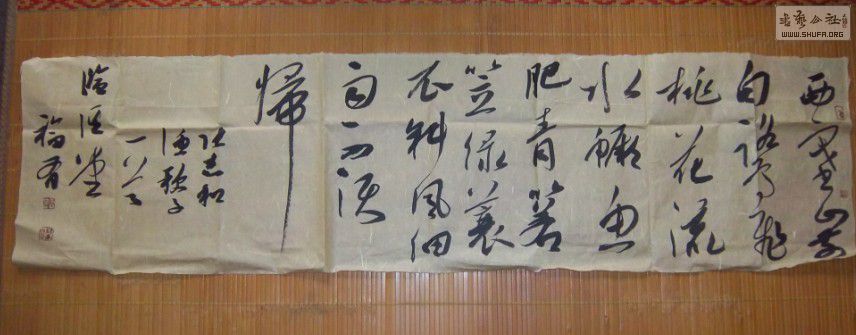 書藝公社
WWW.SHUFA.ORG
西塞山前
白鹭飞
桃花流
水鳜鱼
肥青箬
笠绿蓑
衣斜风细
雨不须
歸
张志和
渔歌子
福有